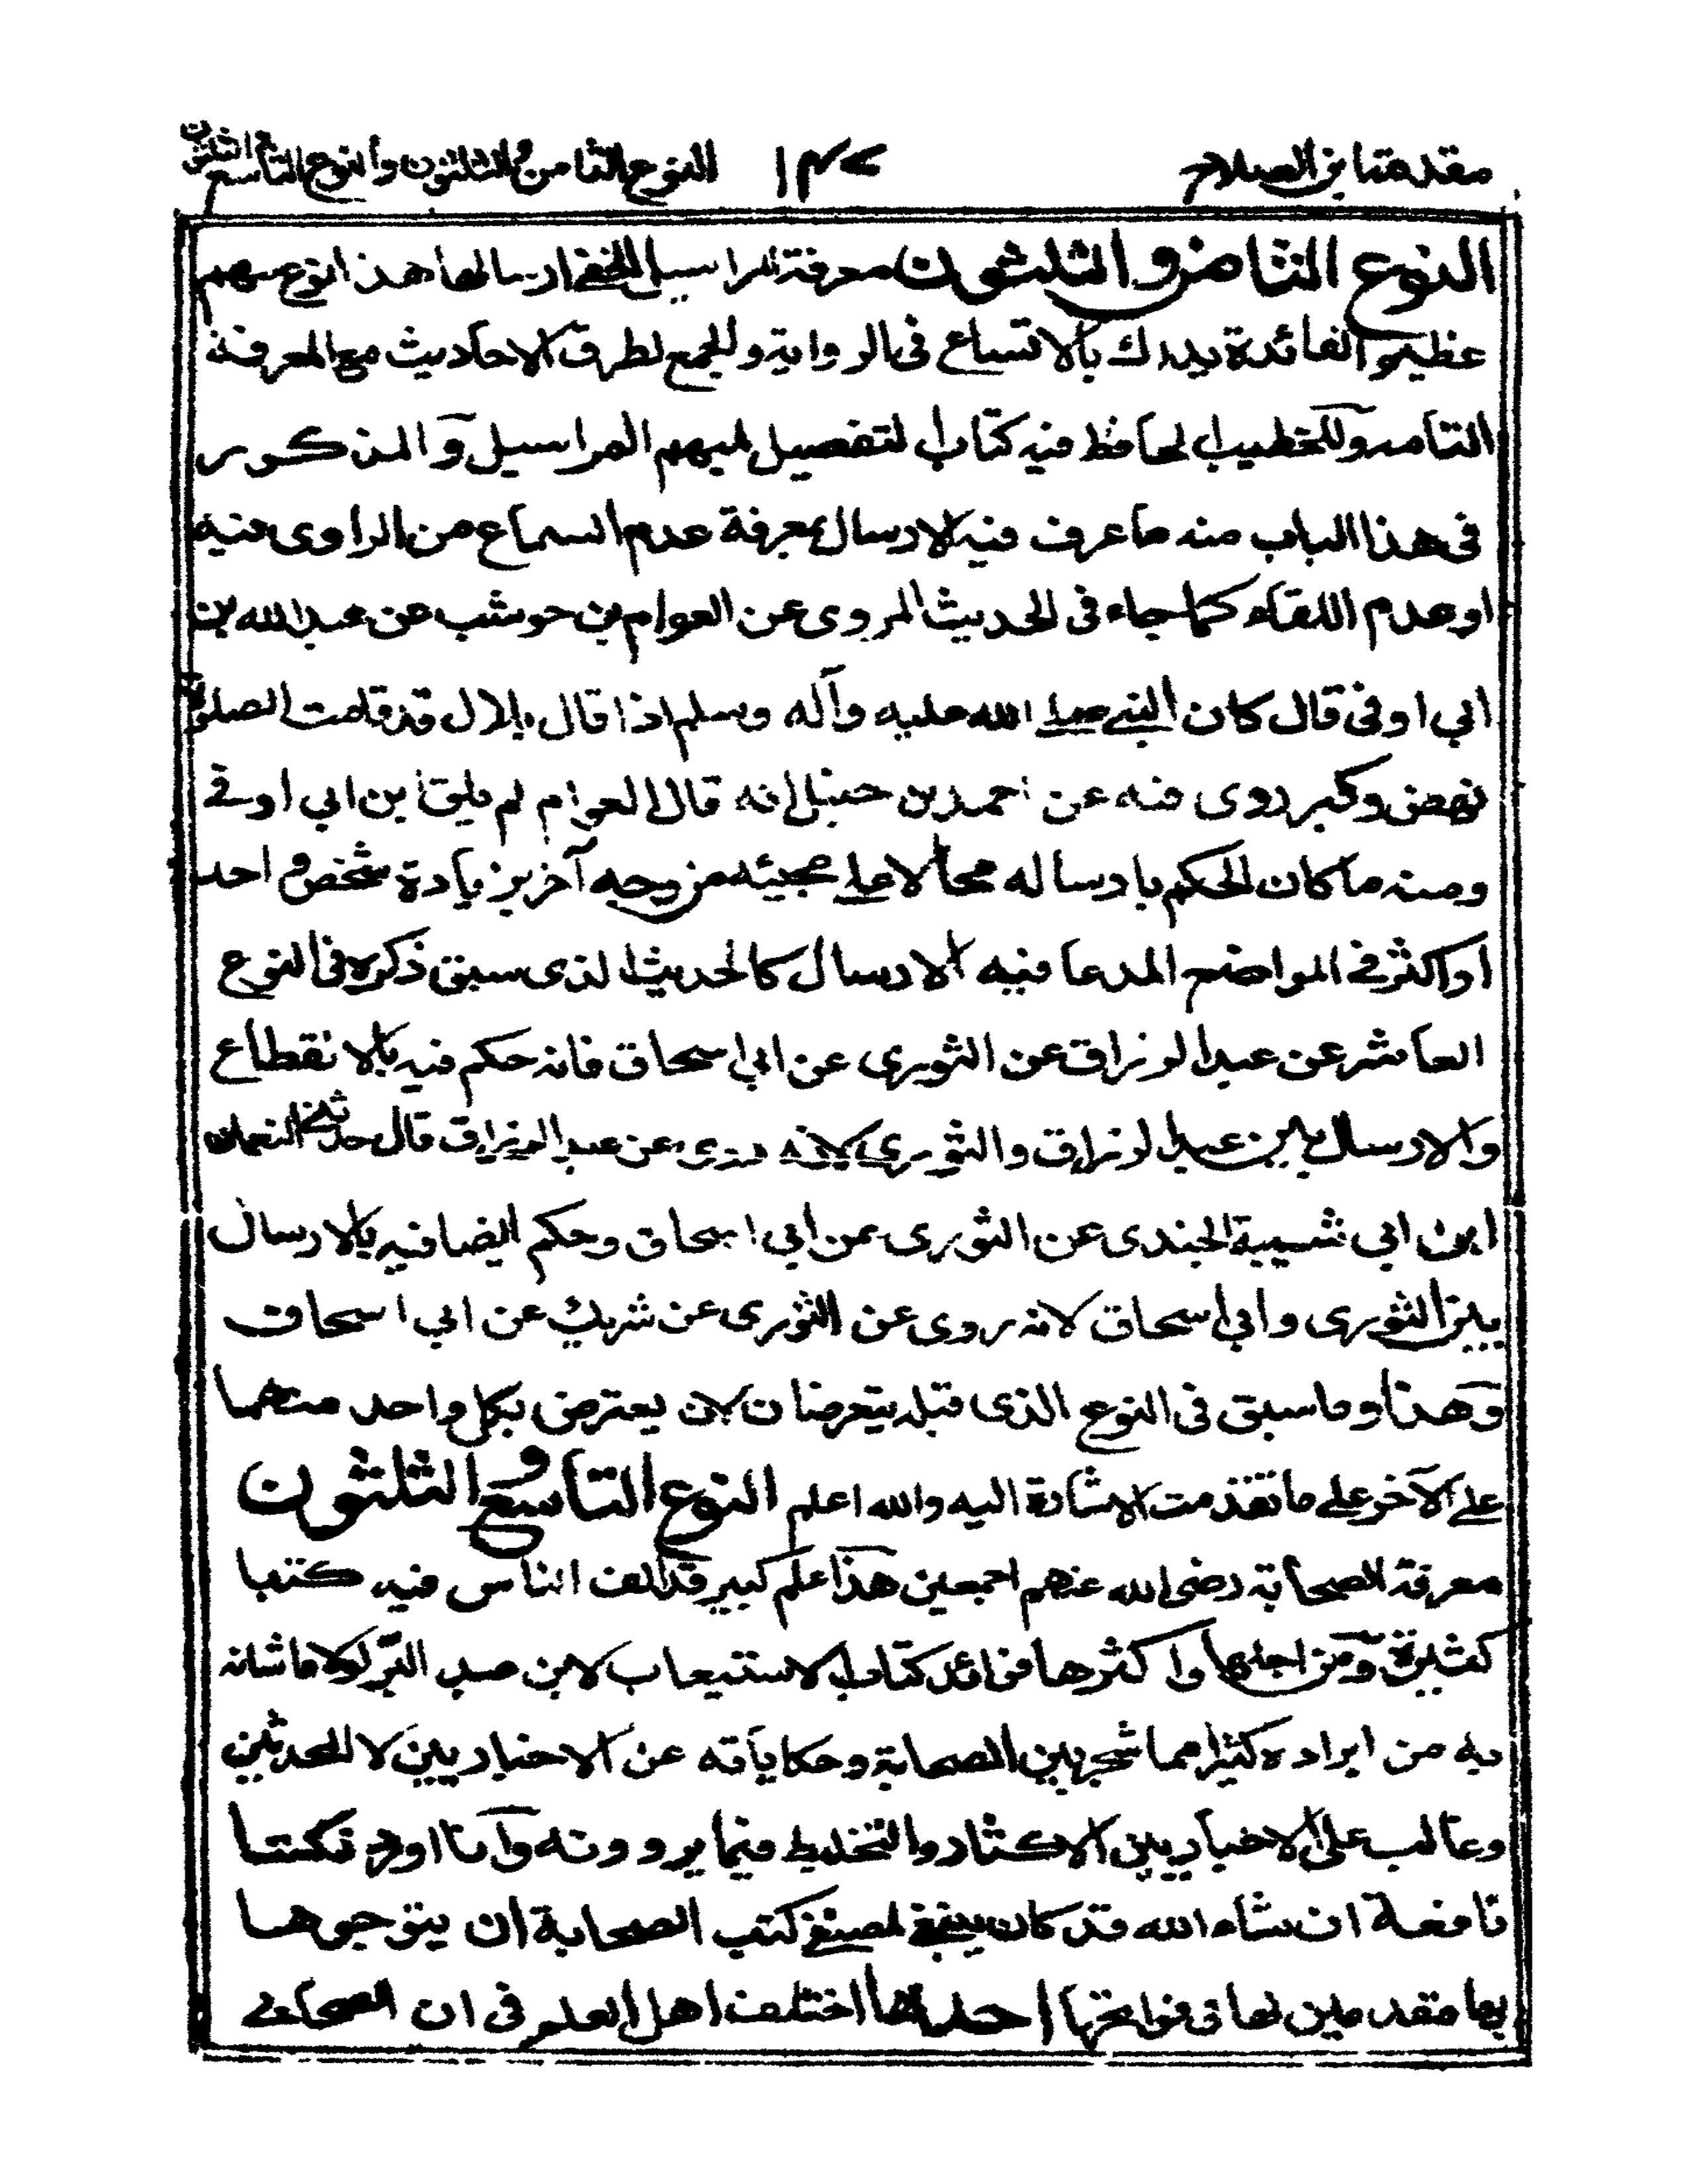 مقدمة ابن الصلاح ١٤٧ النوع الثامن والثلثون والنوع التاسع والثلثون
النوع الثامن والثلثون معرفة المراسيل الخفي ارسالها هذا نوع مهم
عظيم الفائدة يدرك بالاتساع فى الرواية والجمع لطرق الاحاديث مع المعرفة
التامه وللخطيب الحافظ فيه كتاب التفصيل لمبهم المراسيل والمذكور
فى هذا الباب منه ما عرف فيه الارسال بمعرفة عدم السماع من الراوى فيه
او عدم اللقاء كما جاء فى الحديث المروى عن العوام بن حوشب عن عبد الله بن
ابي اوفى قال كان النبي صلى الله عليه وآله وسلم اذا قال بلال قد قامت الصلوة
نهض وكبر روى فيه عن احمد بن حنبل انه قال العوام لم يلق ابن ابي اوفى
ومنه ما كان الحكم بارساله محالا على مجيئه من وجه آخر بزيادة شخص واحد
او اكثر في المواضع المدعا فيه الارسال كالحديث الذى سبق ذكره فى النوع
العاشر عن عبد الرزاق عن الثورى عن ابي اسحاق فانه حكم فيه بالانقطاع
والارسال بين عبد الرزاق والثورى لانه روى عن عبد الرزاق قال حدثني النعمان
ابن ابي شيبة الجندى عن الثورى عن ابي اسحاق وحكم ايضا فيه بالارسال
بين الثورى وابي اسحاق لانه روى عن الثورى عن شريك عن ابي اسحاق
وهذا وما سبق فى النوع الذى قبله يتعرضان لان يعترض بكل واحد منهما
على الآخر على ما تقدمت الاشارة اليه والله اعلم النوع التاسع والثلثون
معرفة الصحابة رضى الله عنهم اجمعين هذا علم كبير قد الف الناس فيه كتبا
كثيرة ومن اجلها واكثرها فوائد كتاب الاستيعاب لابن عبد البر لولا ما شانه
به من ايراده كثيرا مما شجر بين الصحابة وحكاياته عن الاخباريين لا المحدثين
وغالب على الاخباريين الاكثار والتخليط فيما يروونه وانا اورد نكتا
نافعة ان شاء الله قد كان ينبغي لمصنفي كتب الصحابة ان يتوجوها
بها مقدمين لها فى فواتحها احدها اختلف اهل العلم فى ان الصحابي